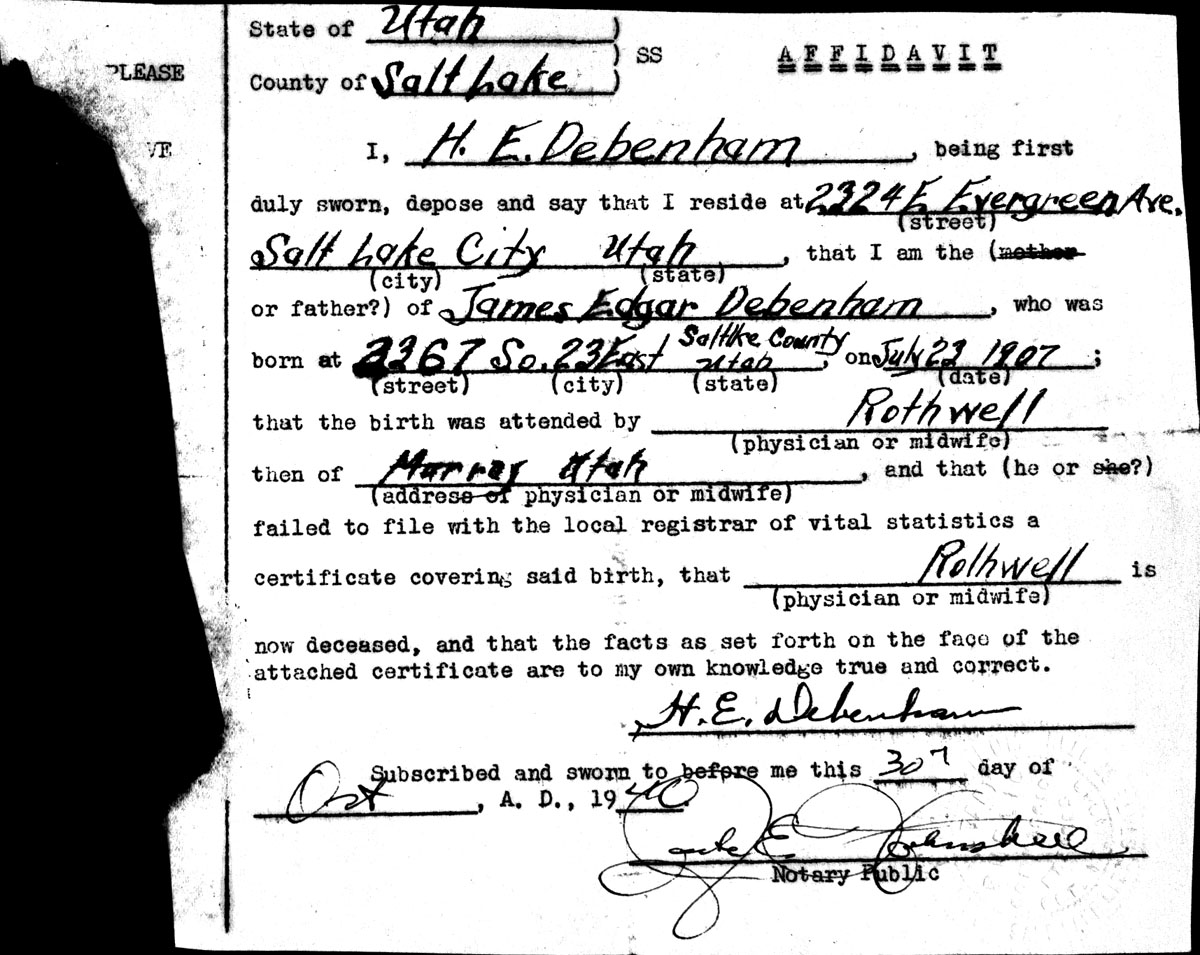 State of Utah )
PLEASE
) SS AFFIDAVIT
County of Salt Lake )
VE
I, H. E. Debenham, being first
duly sworn, depose and say that I reside at 2324 E Evergreen Ave.
(street)
Salt Lake City Utah, that I am the (mother
(city) (state)
or father?) of James Edgar Debenham, who was
Saltlke County
born at 2367 So. 23 East Utah, on July 23 1907;
(street) (city) (state) (date)
that the birth was attended by Rothwell
(physician or midwife)
then of Murray Utah, and that (he or she?)
(address of physician or midwife)
failed to file with the local registrar of vital statistics a
certificate covering said birth, that Rothwell is
(physician or midwife)
now deceased, and that the facts as set forth on the face of the
attached certificate are to my own knowledge true and correct.
H. E. Debenham
Subscribed and sworn to before me this 30 day of
Oct, A. D., 1940.
E
Notary Public